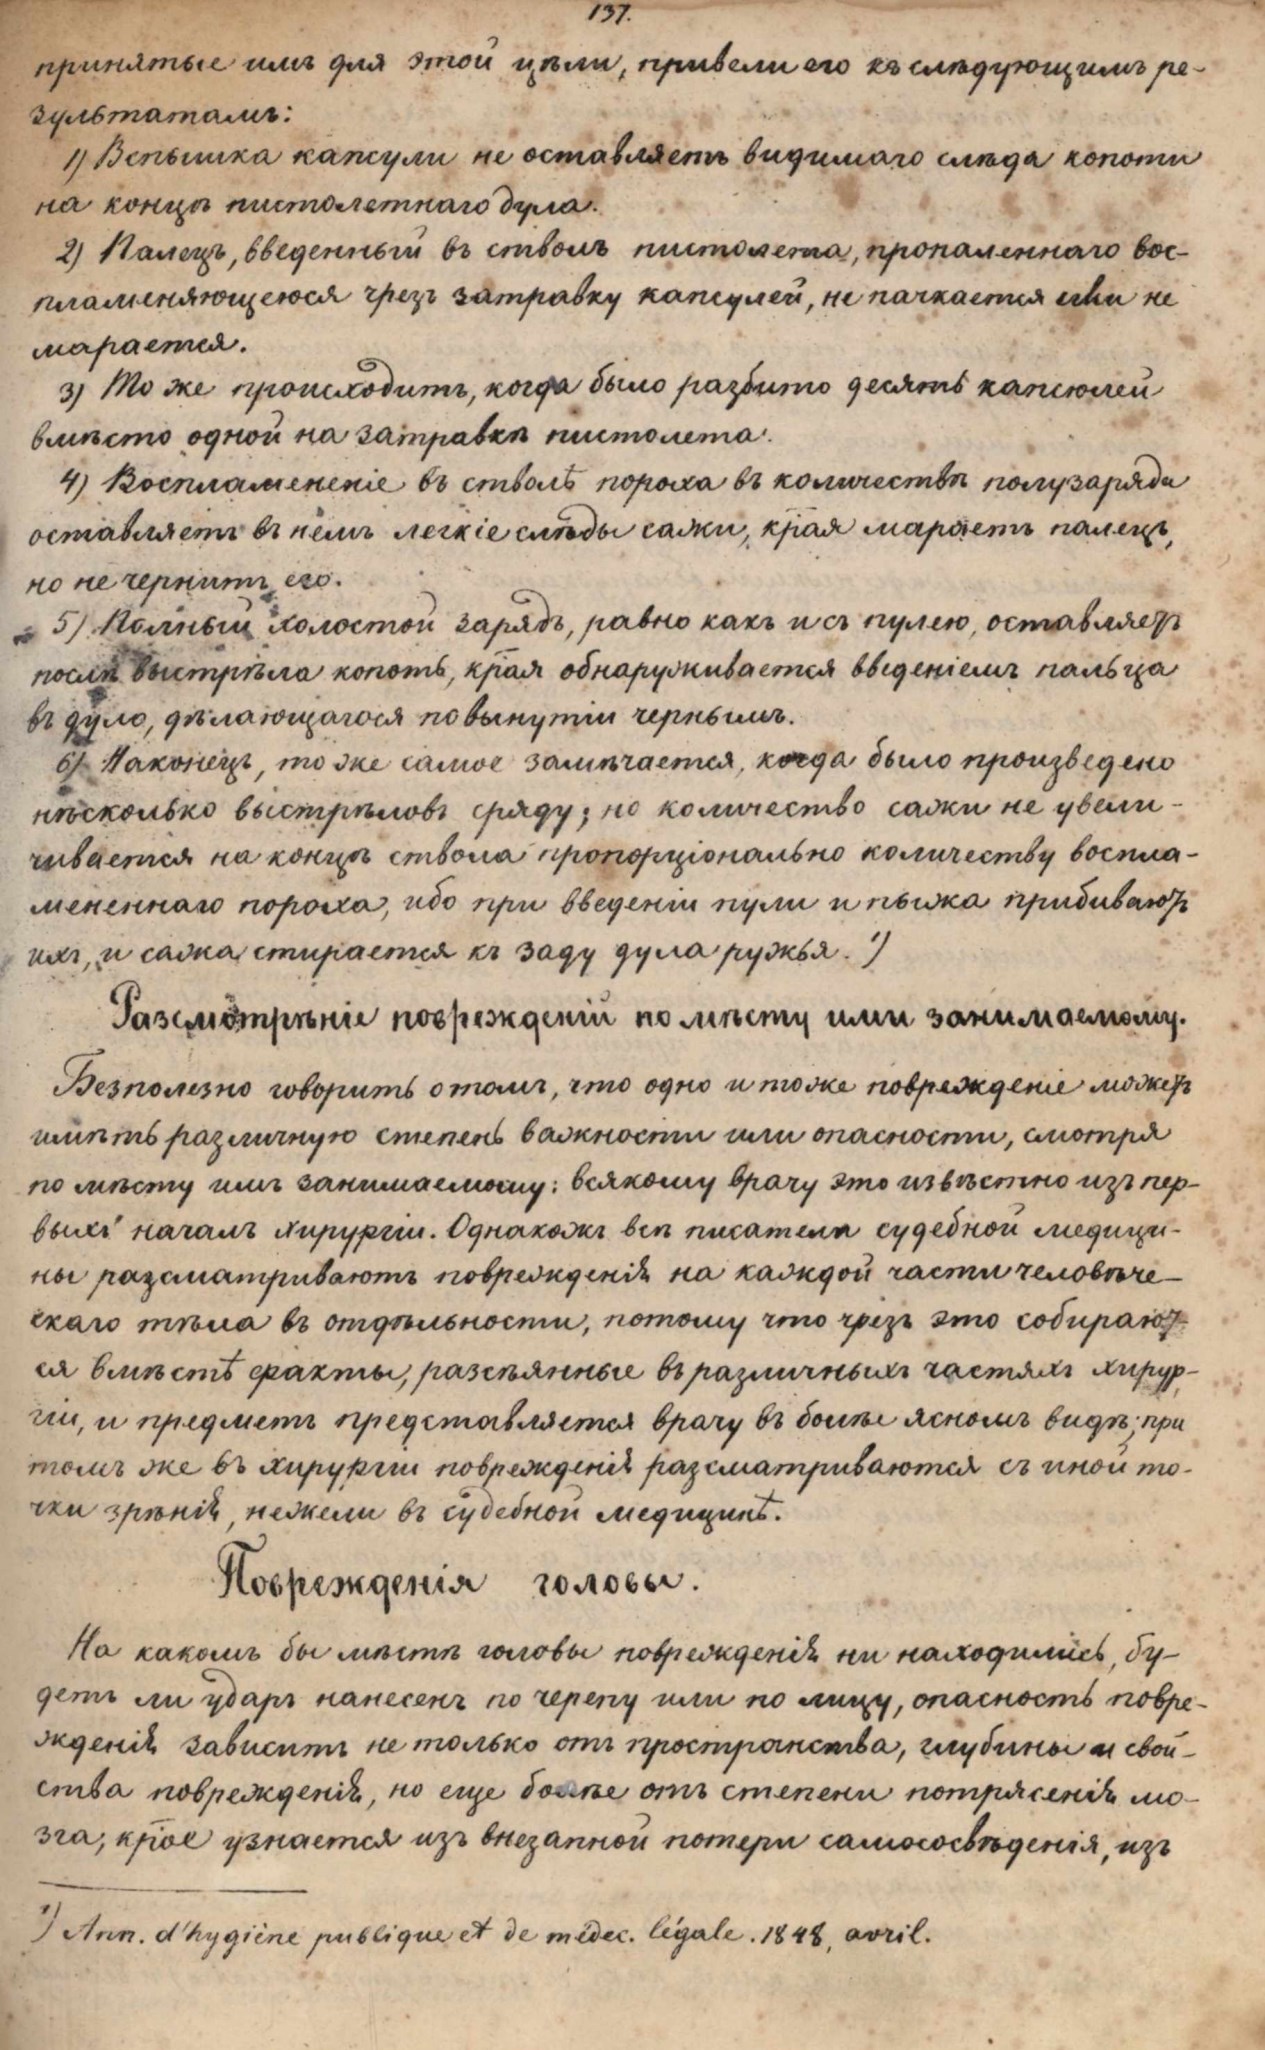 137.
принятые имъ для этой цѣли, привели его къ слѣдующимъ ре-
зультатамъ:
1) Вспышка капсули не оставляетъ видимаго слѣда копоти
на концѣ пистолетнаго дула.
2) Палецъ, введенный въ стволъ пистолета, пропаленнаго вос-
пламеняющеюся чрезъ затравку капсулей, не пачкается или не
марается.
3) То же происходитъ, когда было разбито десять капсюлей
вмѣсто одной на затравкѣ пистолета.
4) Воспламененіе въ стволѣ пороха въ количествѣ полузаряда
оставляетъ въ нёмъ легкіе слѣды сажи, края мараетъ палецъ,
но не чернитъ его.
5) Полный холостой зарядъ, равно какъ и съ пулею, оставляетъ
послѣ выстрѣла копоть, края обнаруживается введеніемъ пальца
въ дуло, дѣлающагося по вынутіи чернымъ.
6) Наконецъ, то же самое замѣчается, когда было произведено
нѣсколько выстрѣловъ сряду; но количество сажи не увели-
чивается на концѣ ствола пропорціонально количеству воспла-
мененнаго пороха, ибо при введеніи пули и пыжа прибиваютъ
ихъ, и сажа стирается къ заду дула ружья. ¹)
Разсмотрѣніе поврежденій по мѣсту ими занимаемому.
Безполезно говорить о томъ, что одно и тоже поврежденіе можетъ
имѣть различную степень важности или опасности, смотря
по мѣсту имъ занимаемому: всякому врачу это извѣстно изъ пер-
выхъ началъ хирургіи. Однакожъ всѣ писатели судебной медици-
ны разсматриваютъ поврежденія на каждой части человѣче-
скаго тѣла въ отдѣльности, потому что чрезъ это собирают-
ся вмѣстѣ факты, разсѣянные въ различныхъ частяхъ хирур-
гіи, и предметъ представляется врачу въ болѣе ясномъ видѣ; при
томъ же въ хирургіи поврежденія разсматриваются съ иной то-
чки зрѣнія, нежели въ судебной медицинѣ.
Поврежденія головы.
На какомъ бы мѣстѣ головы поврежденія ни находились, бу-
детъ ли ударъ нанесенъ по черепу или по лицу, опасность повре-
жденія зависитъ не только отъ пространства, глубины и свой-
ства поврежденія, но еще болѣе отъ степени потрясенія мо-
зга, крое узнается изъ внезапной потери самосовѣденія, изъ
¹) Ann. d'hygiène publique et de médec. légale. 1848, avril.